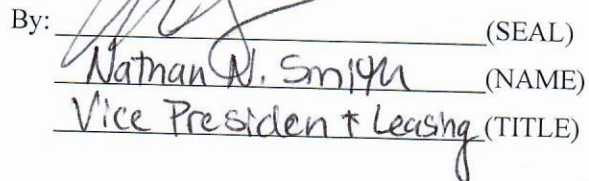 By: (SEAL)
Nathan N. Smith (NAME)
Vice President Leasing (TITLE)